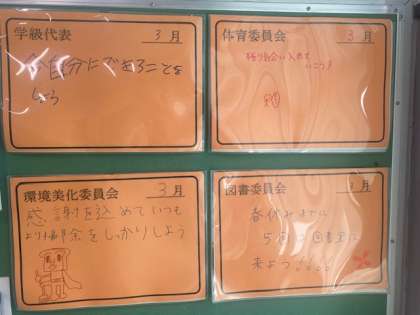 学級代表
3月
今自分にできることを
しよう
体育委員会
3月
いこう
環境美化委員会
3月
感謝を込めていつも
より掃除をしっかりしよう
図書委員会
3月
春休みまでに
5回は図書室に
来よう!!!!